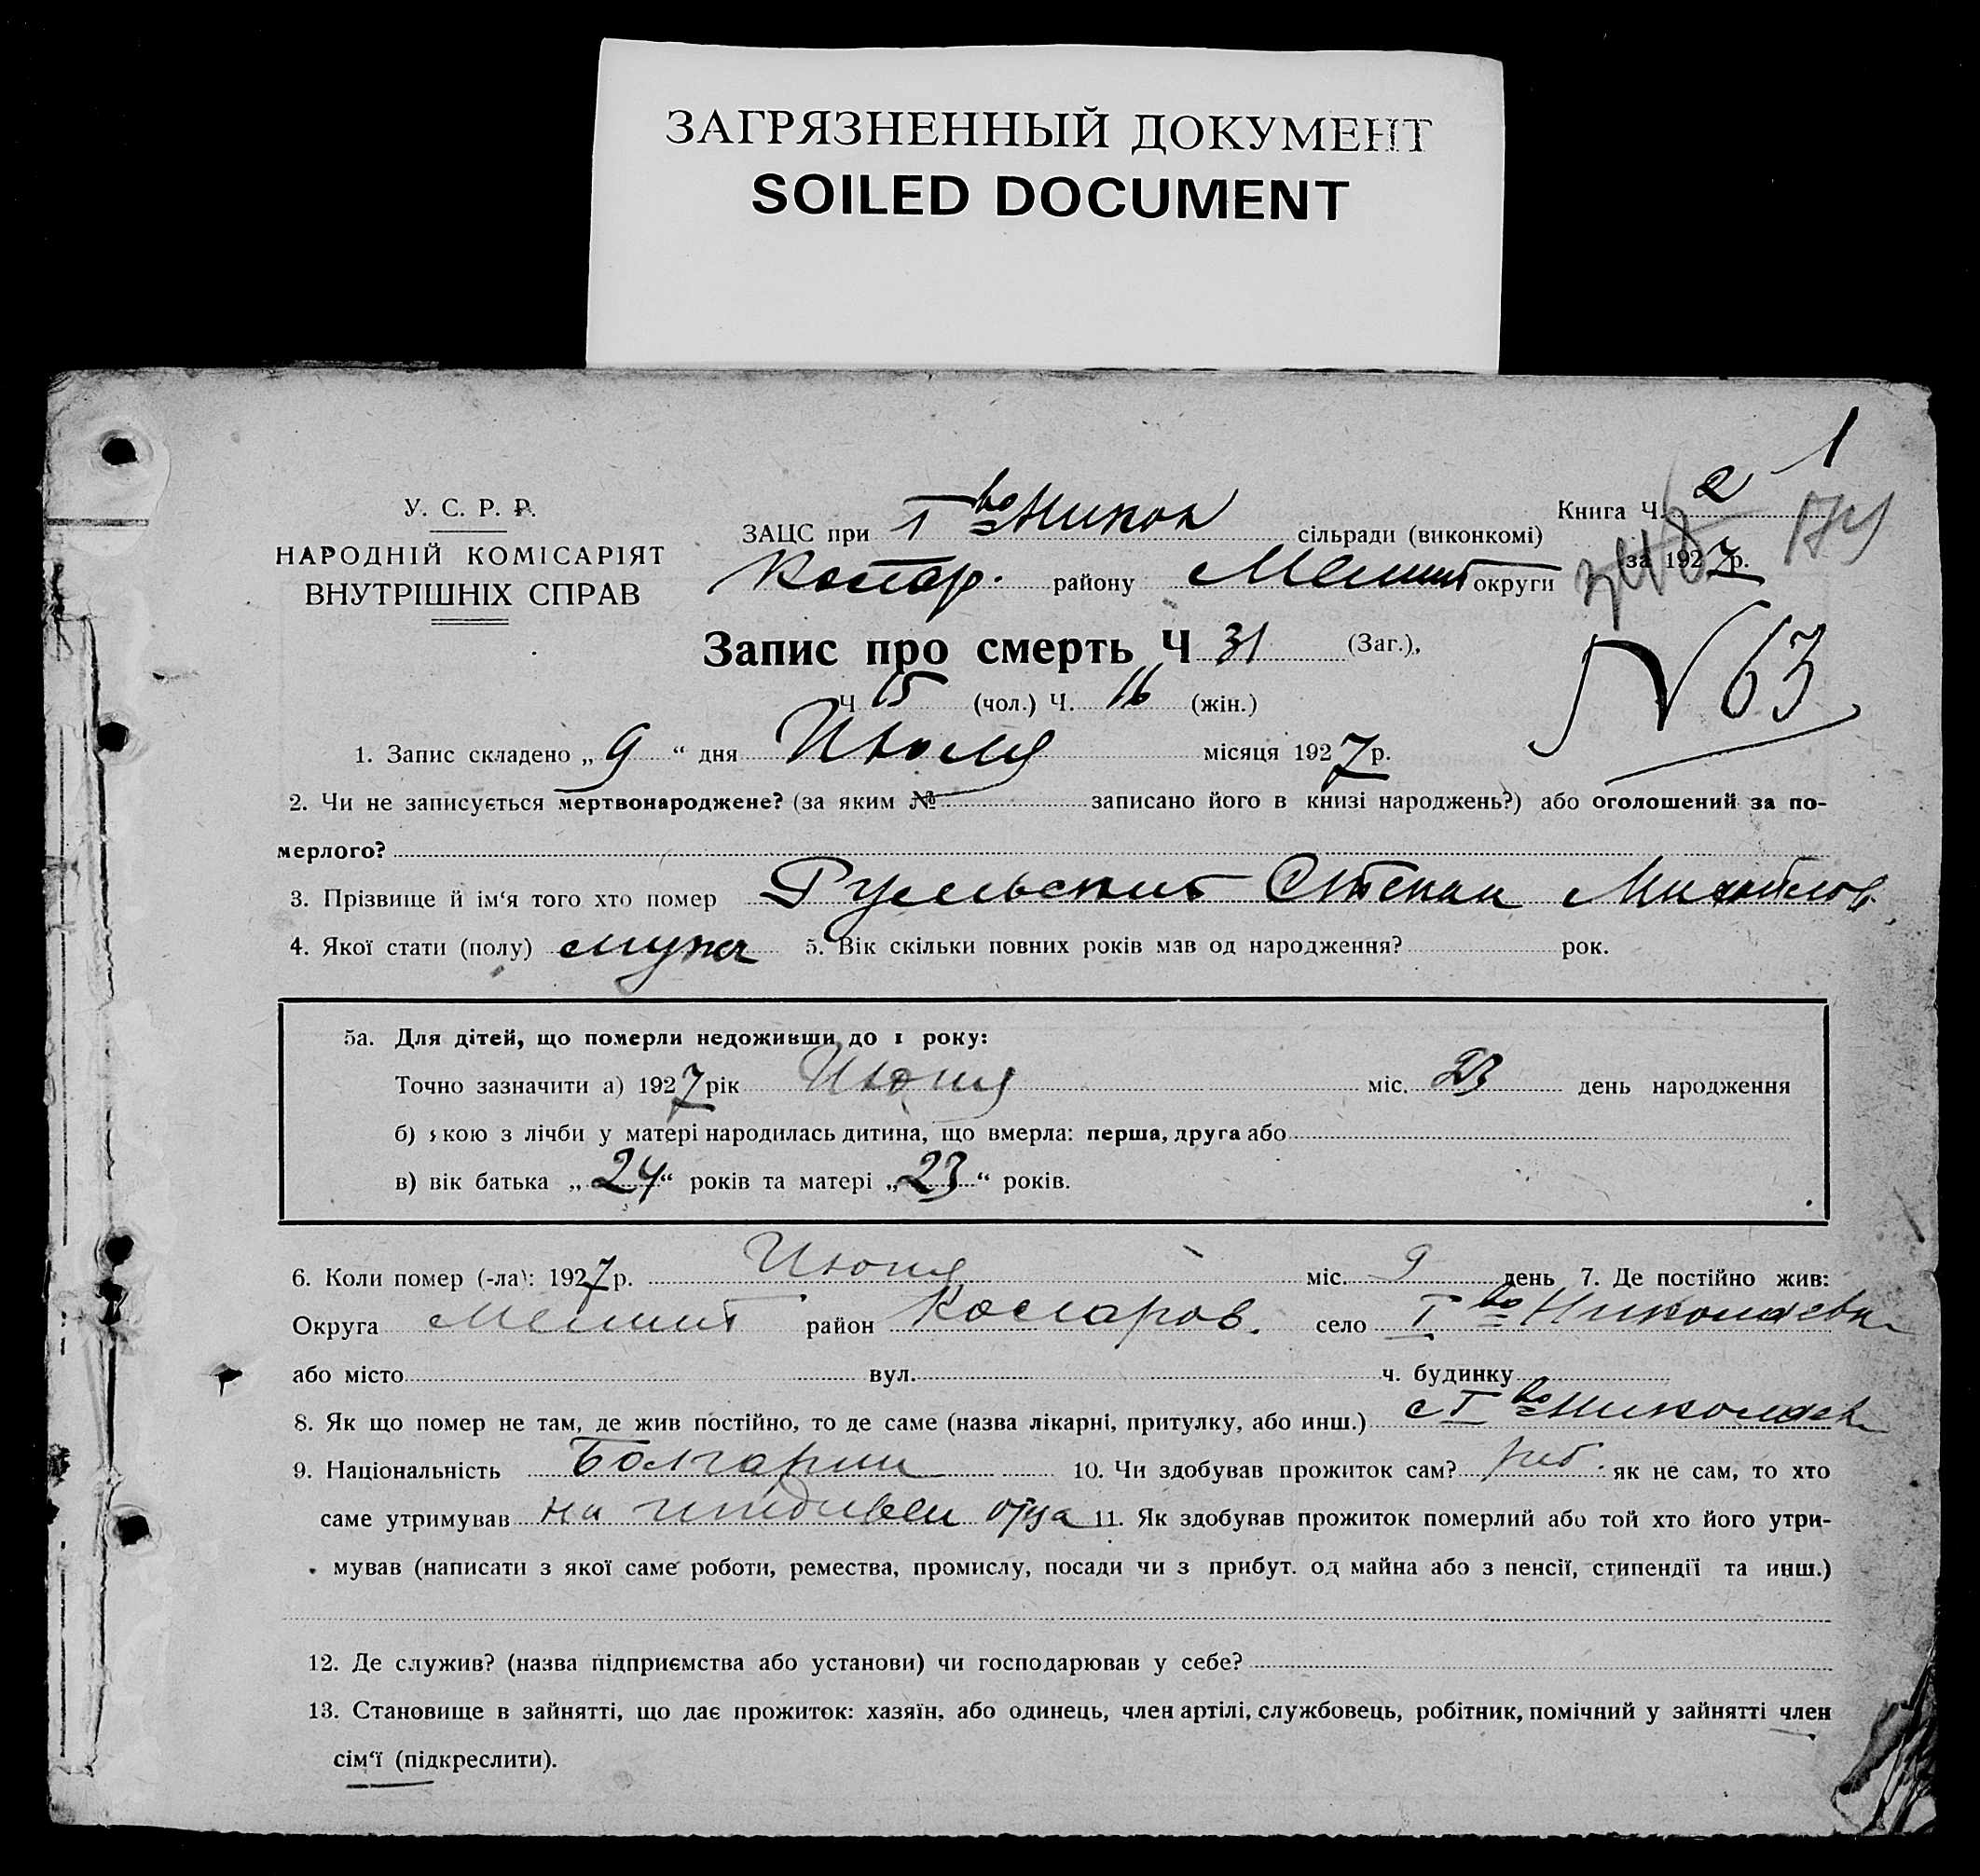 ЗАГРЯЗНЕННЫЙ ДОКУМЕНТ
SOILED DOCUMENT
1
У. С. Р. Р.
НАРОДНІЙ КОМІСАРІЯТ
ВНУТРІШНІХ СПРАВ
Книга Ч. 2
ЗАЦС при І во Никол сільради (виконкомі)
за 1927 р.
району Мелит округи
Запис про смерть Ч 31 (Заг.),
N 63
Ч 15 (чол.) Ч. 16 (жін.)
1. Запис складено „ 9 “ дня Июля місяця 1927 р.
2. Чи не записується мертвонароджене? (за яким № записано його в книзі народжень?) або оголошений за по-
мерлого?
3. Прізвище й ім‘я того хто помер Степан Михайлов.
4. Якої стати (полу) 5. Вік скільки повних років мав од народження? рок.
5а. Для дітей, що померли недоживши до 1 року:
Точно зазначити а) 1927 рік Июня міс. 23 день народження
б) якою з лічби у матері народилась дитина, що вмерла: перша, друга або
в) вік батька „ 24 “ років та матері „ 23 “ років.
6. Коли помер (-ла): 1927 р. міс. 9 день 7. Де постійно жив:
Округа Мелит район село І во Николаевк
або місто вул. ч. будинку
8. Як що помер не там, де жив постійно, то де саме (назва лікарні, притулку, або инш.) с І во Николаев
9. Національність Болгарин 10. Чи здобував прожиток сам? як не сам, то хто
саме утримував на иждивен отца 11. Як здобував прожиток померлий або той хто його утри-
мував (написати з якої саме роботи, ремества, промислу, посади чи з прибут. од майна або з пенсії, стипендії та инш.)
12. Де служив? (назва підприємства або установи) чи господарював у себе?
13. Становище в зайнятті, що дає прожиток: хазяїн, або одинець, член артілі, службовець, робітник, помічний у зайнятті член
сім‘ї (підкреслити).